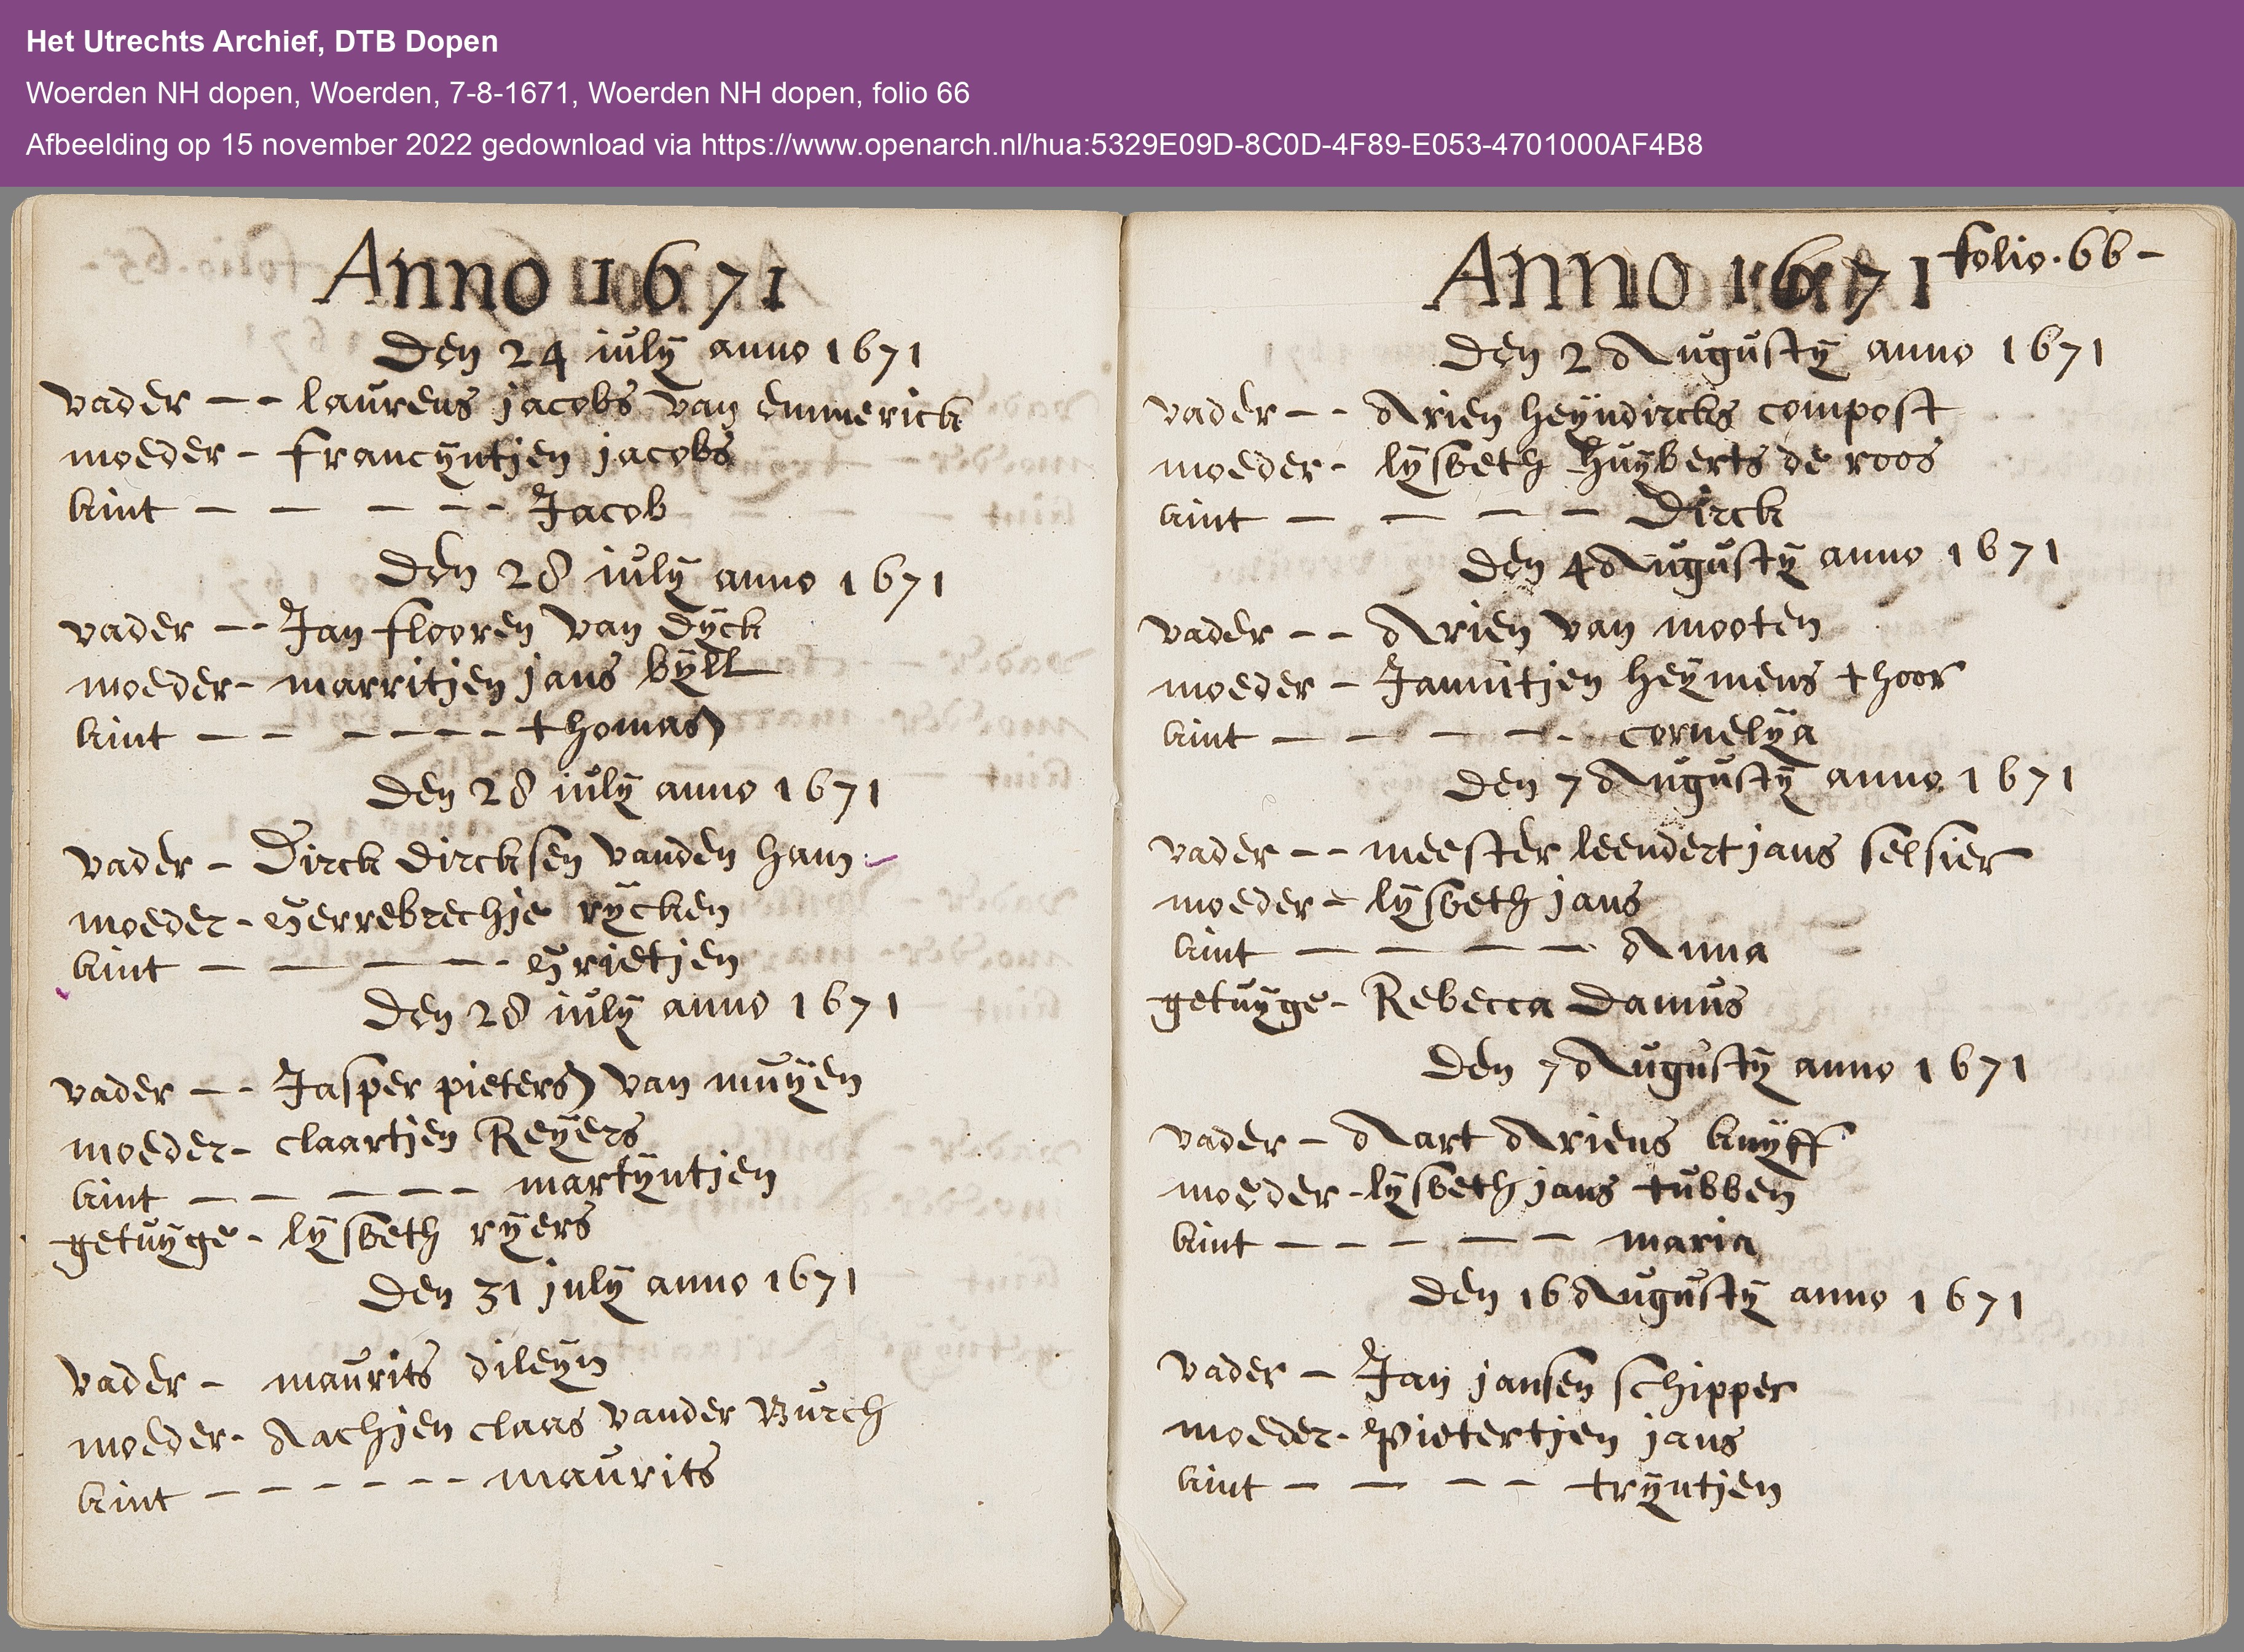 Het Utrechts Archief, DTB Dopen
Woerden NH dopen, Woerden, 7-8-1671, Woerden NH dopen, folio 66
Afbeelding op 15 november 2022 gedownload via https://www.openarch.nl/hua:5329E09D-8C0D-4F89-E053-4701000AF4B8
Anno 1671
Den 24 july anno 1671
vader -- laurens jacobs van emmerick
moeder - francyntjen jacobs
kint - - - - - Jacob
Den 28 july anno 1671
vader -- Jan flooren van dyck
moeder - marritjen jans byll
kint - - - - - - thomas
Den 28 july anno 1671
vader - Dirck dircksen vanden ham
moeder - Gerrebrechje rycken
kint - - - - - Grietjen
Den 28 july anno 1671
vader -- Jasper pieters van muyen
moeder - claartjen Reyers
kint - - - - - martyntjen
getuyge - lysbeth ryers
Den 31 july anno 1671
vader - maurits dileyn
moeder - Aachjen claas vander Burch
kint - - - - - - maurits
Anno 1671 folio. 66 -
Den 2 Augusty anno 1671
vader -- Arien heyndircks compost
moeder - lysbeth huyberts de roos
kint - - - - Dirck
Den 4 Augusty anno 1671
vader -- Arien van mooten
moeder - Jannitjen heymens thoor
kint - - - - - cornelya
Den 7 Augusty anno 1671
vader -- meester leendert jans selsier
moeder - lysbeth jans
kint - - - - Anna
getuyge - Rebecca Damus
Den 7 Augusty anno 1671
vader - Aart Ariens kuyff
moeder - lysbeth jans tubben
kint - - - - - maria
Den 16 Augusty anno 1671
vader - Jan jansen schipper
moeder - Pietertjen jans
kint - - - - tryntjen